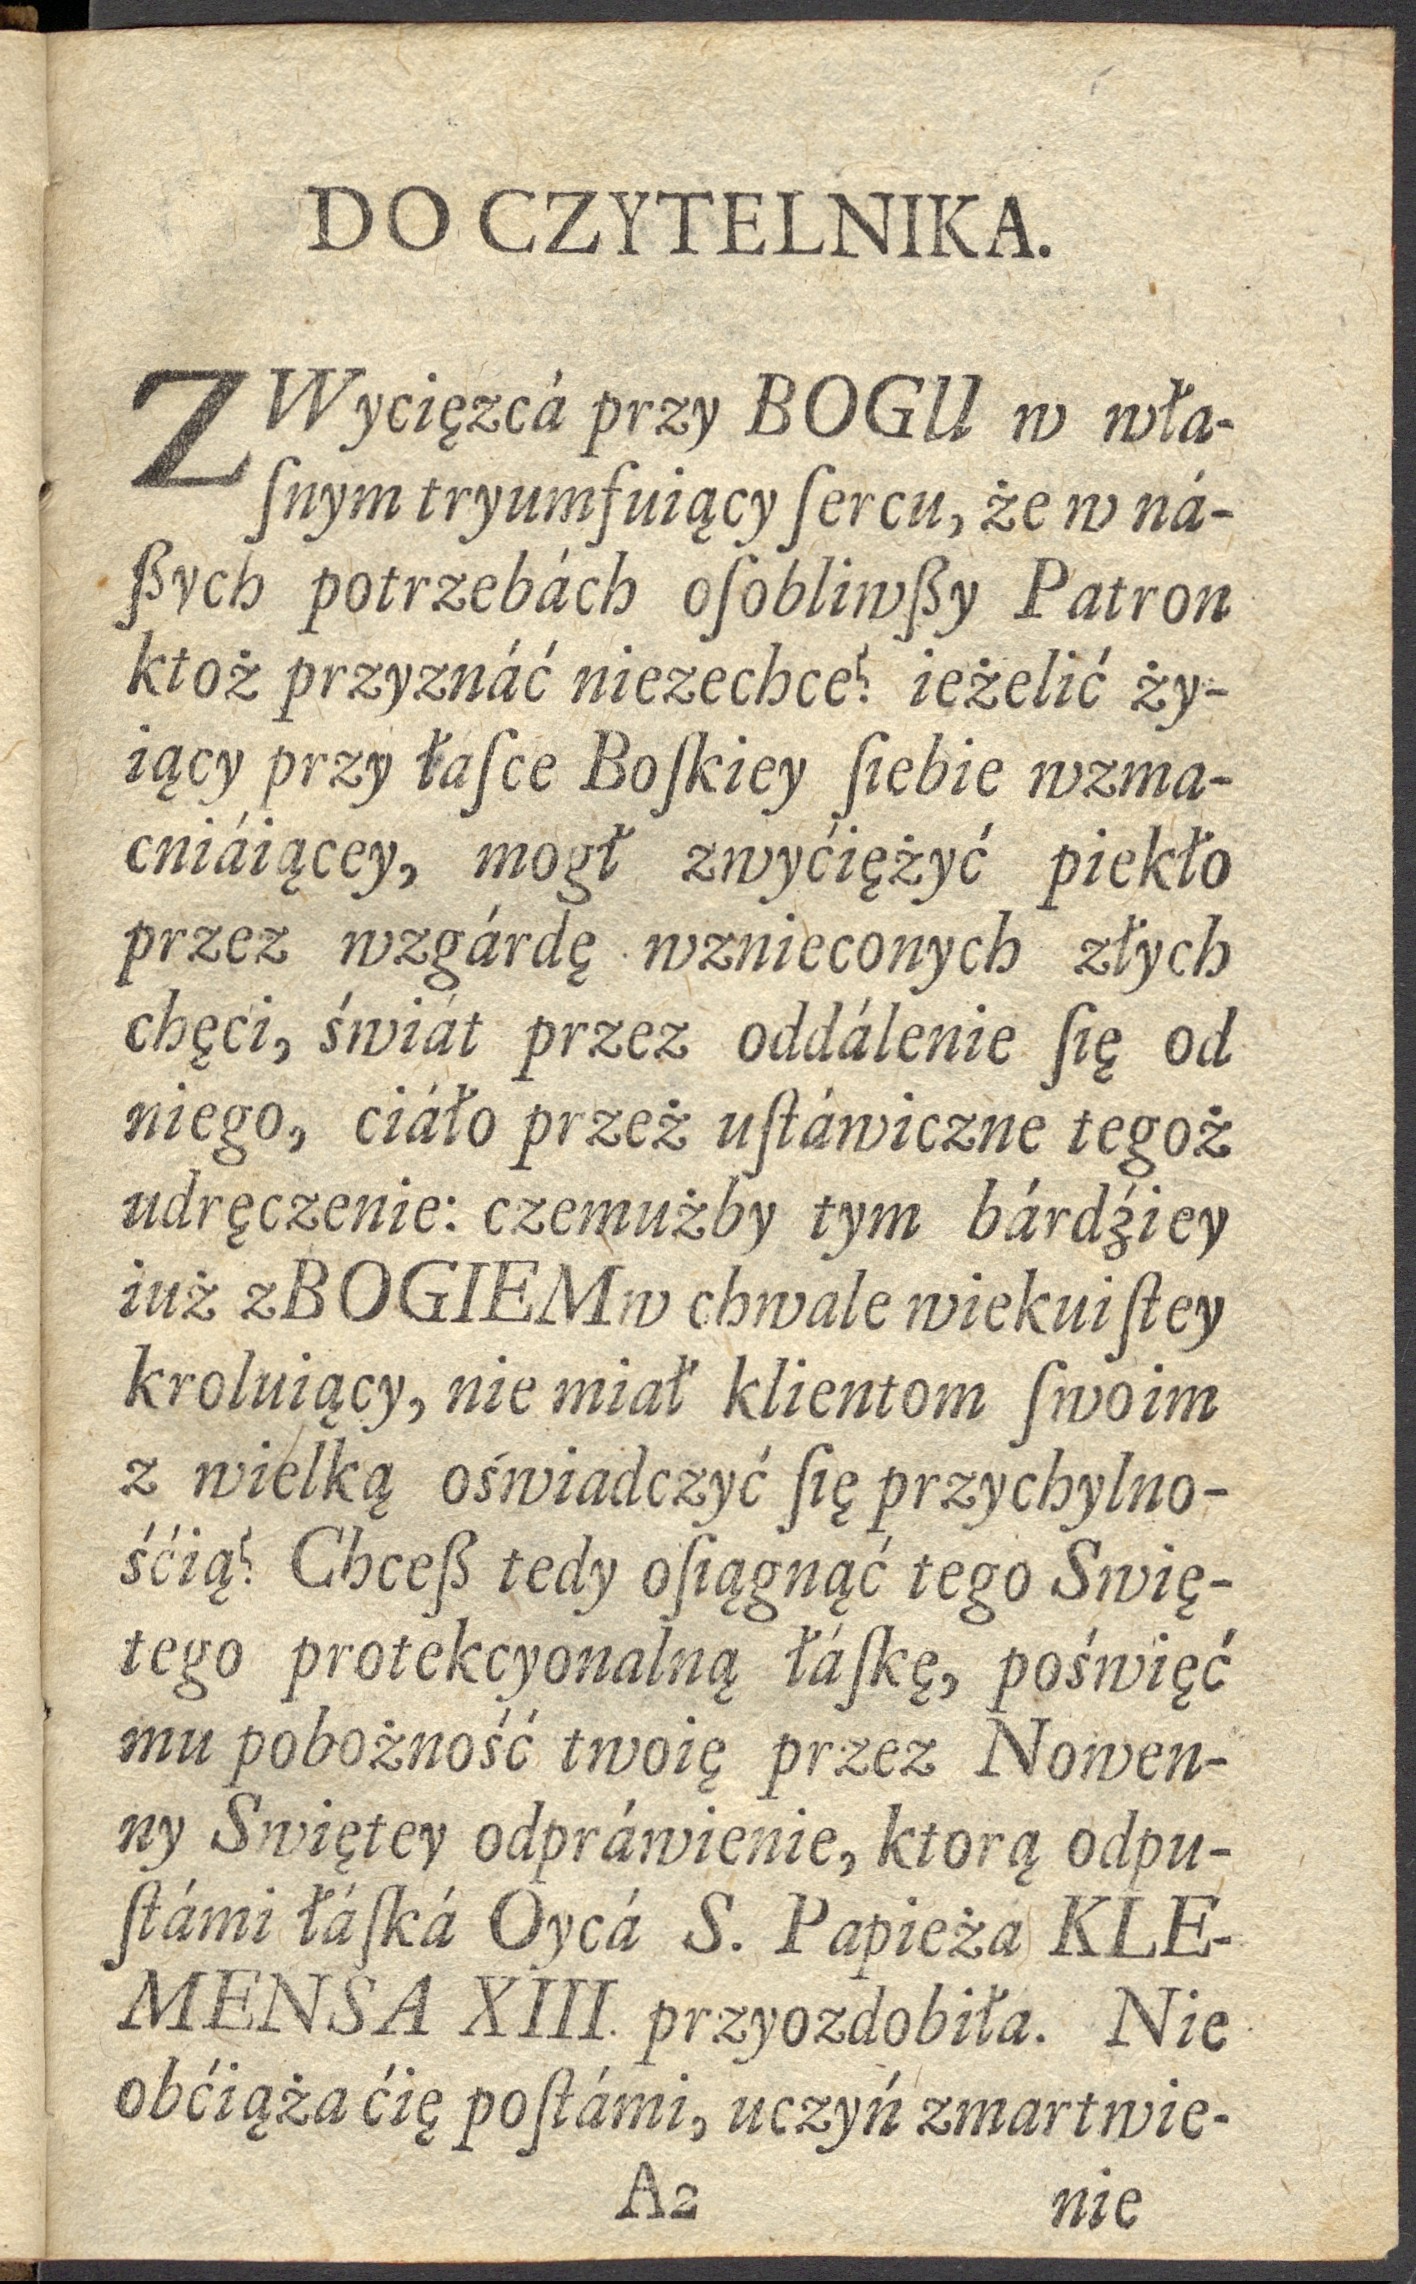 DO CZYTELNIKA.
ZWycięzcá przy BOGU w wła-
ſnym tryumfuiący ſercu, że w ná-
ßych potrzebách oſobliwßy Patron
ktoż przyznáć niezechce? ieżelić ży-
iący przy łaſce Boſkiey ſiebie wzma-
cniáiącey, mogł zwyćiężyć piekło
przez wzgárdę wznieconych złych
chęci, świát przez oddálenie ſię od
niego, ciáło przeż uſtáwiczne tegoż
udręczenie: czemużby tym bárdźiey
iuż z BOGIEM w chwale wiekuiſtey
kroluiący, nie miał klientom ſwoim
z wielką oświadczyć ſię przychylno-
śćią? Chceß tedy oſiągnąć tego Swię-
tego protekcyonalną łáſkę, poświęć
mu pobożność twoię przez Nowen-
ny Swiętey odpráwienie, ktorą odpu-
ſtámi łáſká Oycá S. Papieża KLE-
MENSA XIII. przyozdobiła. Nie
obćiąża ćię poſtámi, uczyń zmartwie-
A2 nie